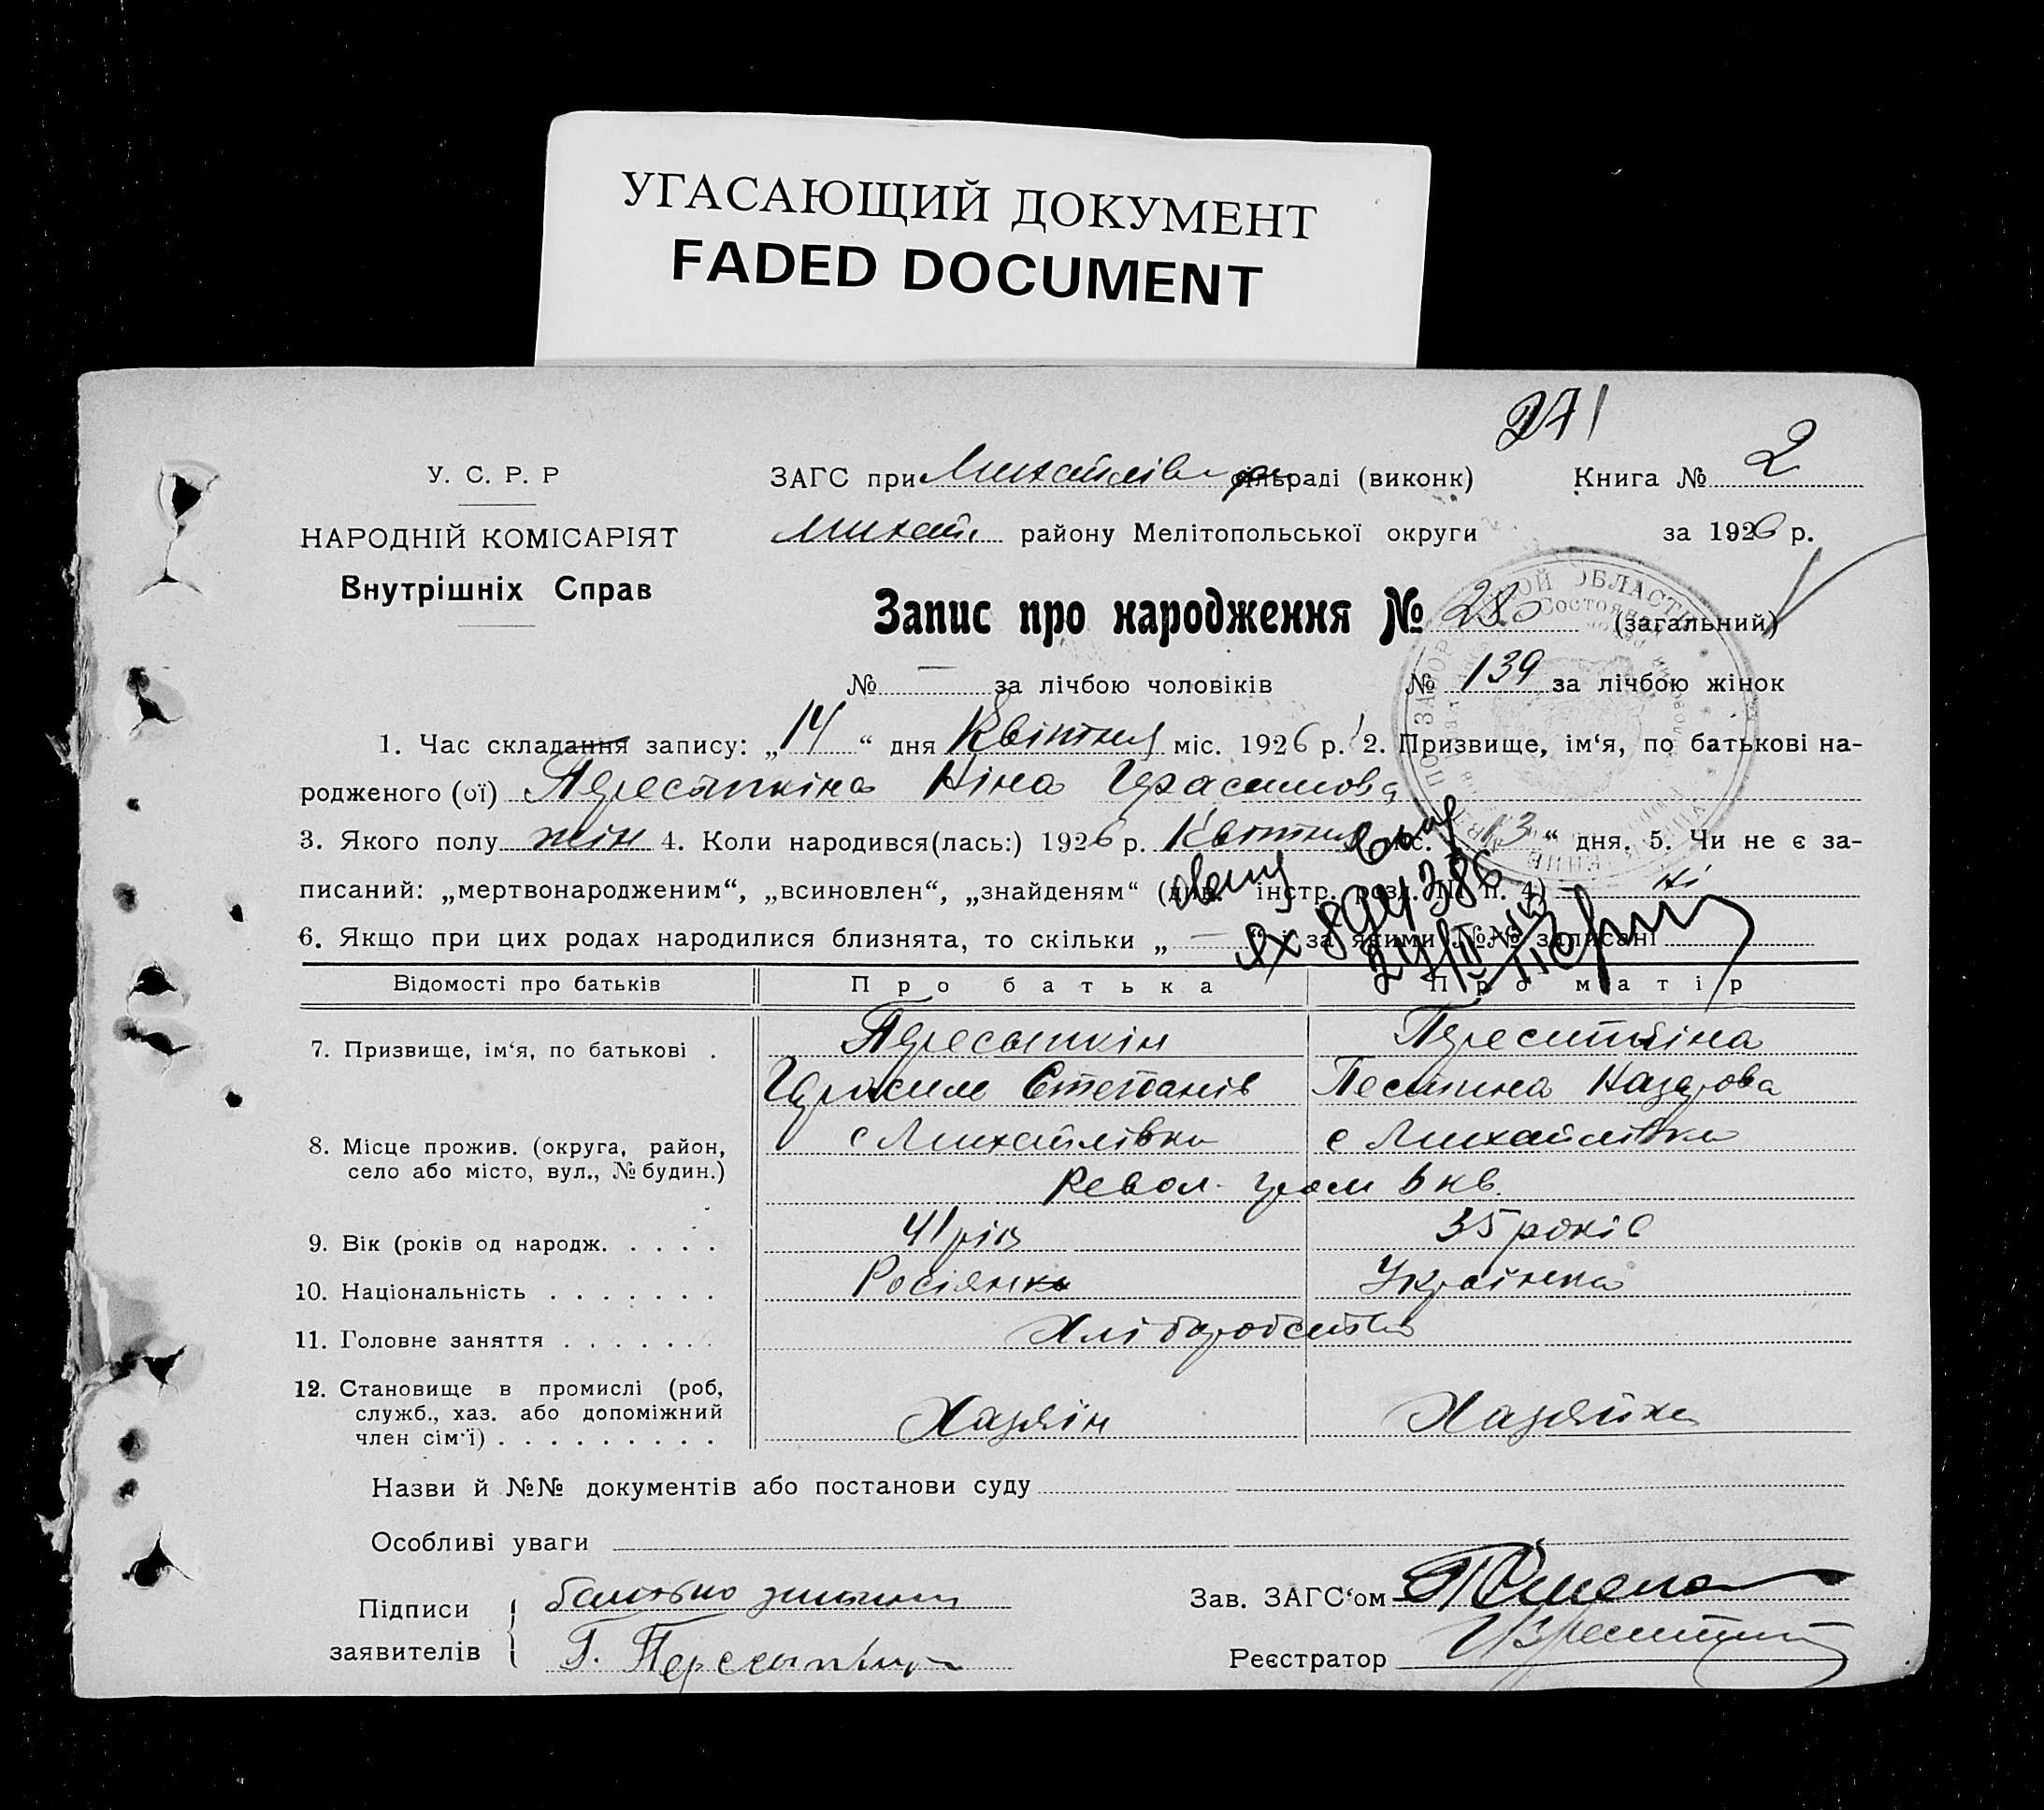 УГАСАЮЩИЙ ДОКУМЕНТ
FADED DOCUMENT
271
У. С. Р. Р
ЗАГС при Михайлів сільраді (виконк) Книга № 2
НАРОДНІЙ КОМІСАРІЯТ
Михайл. району Мелітопольської округи за 1926 р.
Внутрішніх Справ
Запис про народження № 280 (загальний)
№ — за лічбою чоловіків № 139 за лічбою жінок
1. Час складання запису: „14“ дня Квітня міс. 1926 р. 2. Призвище, ім‘я, по батькові на-
родженого (ої) Пересипкіна Ніна Герасимова
3. Якого полу жін 4. Коли народився(лась:) 1926 р. Квітня міс. „13“ дня. 5. Чи не є за-
писаний: „мертвонародженим“, „всиновлен“, „знайденям“ (див. інстр. розд. III п. 4) ні
6. Якщо при цих родах народилися близнята, то скільки „—“ і за якими №№ записані
Відомості про батьків Про батька Про матір
7. Призвище, ім‘я, по батькові . Пересыпкін Переситкіна
Герасим Степанів Пестина Назарова
8. Місце прожив. (округа, район, с Михайлівка с Михайлівка
село або місто, вул., № будин.)
Револ. гром 6 кв.
9. Вік (років од народж. . . . . 41 рік 35 років
10. Національність . . . . . . . Росіянка Українка
11. Головне заняття . . . . . . . Хліборобство
12. Становище в промислі (роб,
служб., хаз. або допоміжний Хазяїн Хазяйка
член сім‘ї) . . . . . . . . .
Назви й №№ документів або постанови суду
Особливі уваги
Підписи батько
Зав. ЗАГС‘ом
заявителів Г. Пересыпкин
Реєстратор